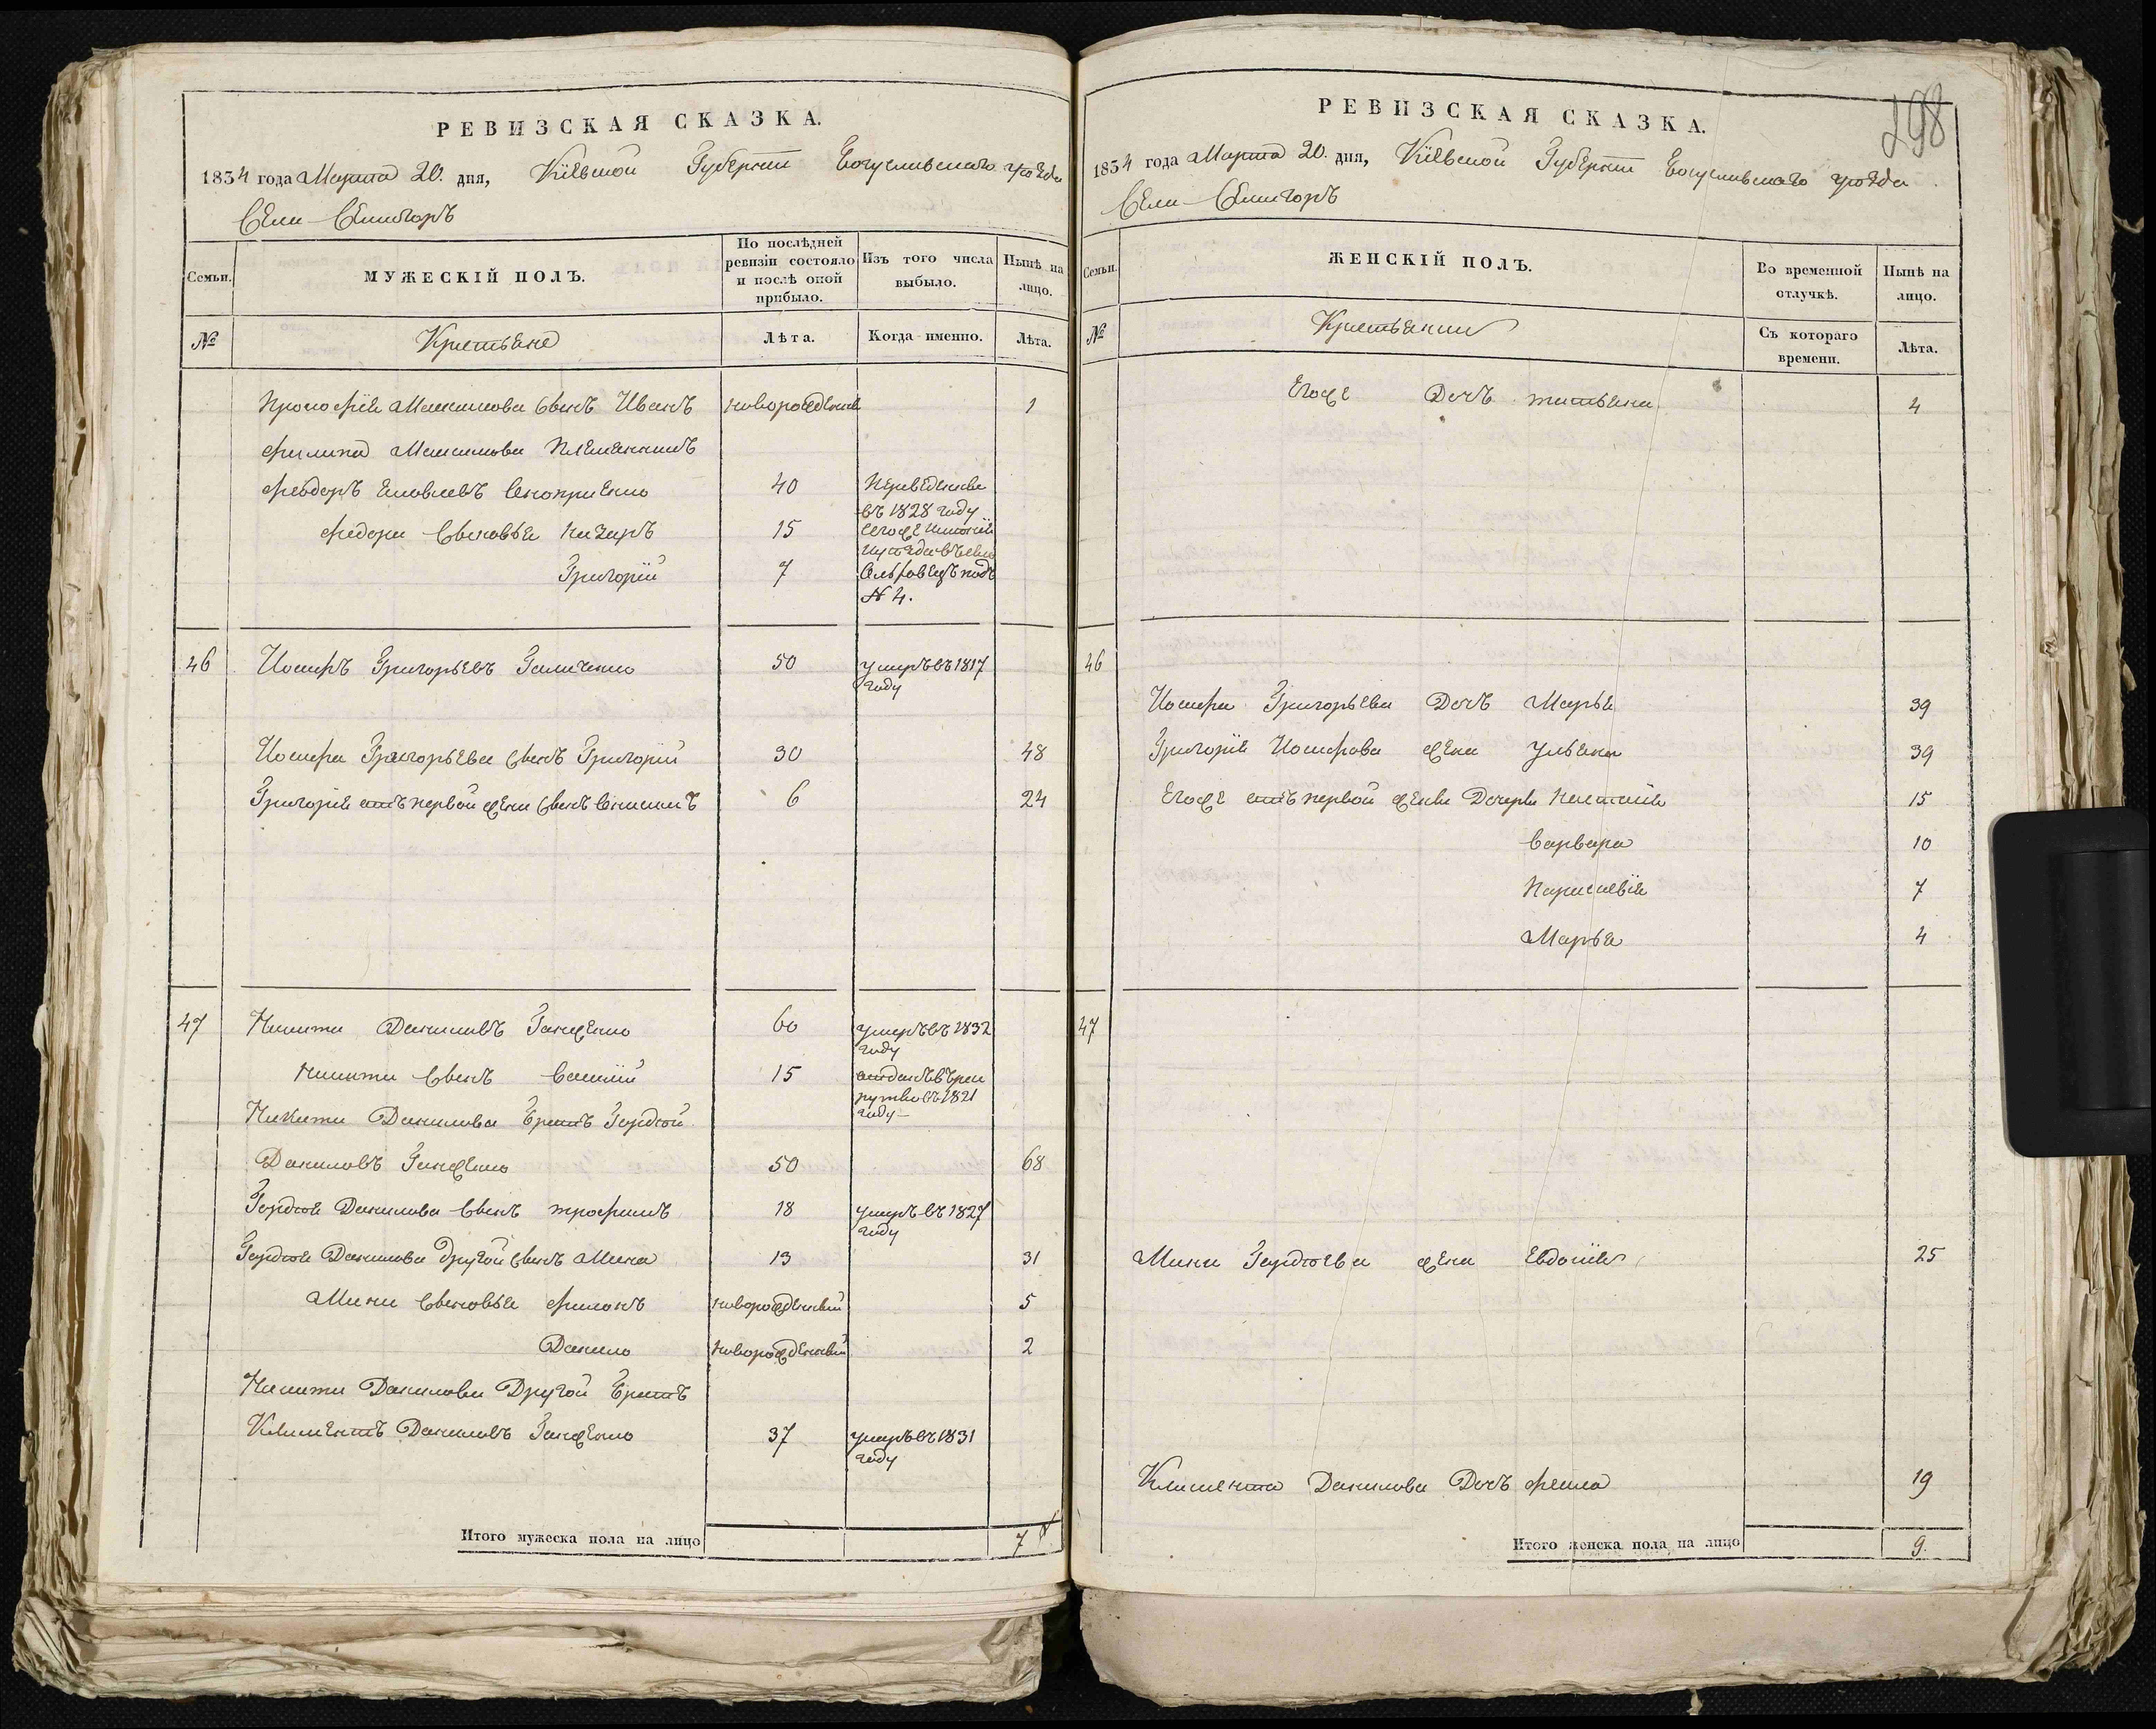 РЕВИЗСКАЯ СКАЗКА.
1834 года Марта 20. дня, Кіевской Губерніи Богуславскаго уѣзда
Села Семигоръ
Семьи.
МУЖЕСКІЙ ПОЛЪ.
По послѣдней ревизіи состояло и послѣ оной прибыло.
Изъ того числа выбыло.
Нынѣ на лицо.
№
Крестьяне
Лѣта.
Когда именно.
Лѣта.
Прокофія Максимова сынъ Иванъ новорожденный 1
Филипа Максимова племянникъ
Феодоръ Яковлевъ 40 Переведены
въ 1828 году
Федора сыновья Назаръ 15
Григорій 7 подъ
№ 4.
46 Іосифъ Григорьевъ Галиченко 50 умеръ въ 1817
году
Іосифа Григорьева сынъ Григорій 30 48
Григорія отъ первой жены сынъ Онисимъ 6 24
47 Никита Даниловъ Ганженко 60 умеръ въ 1832
году
Никиты сынъ Василій 15 отданъ въ рек
руты въ 1821
году
Никиты Данилова братъ Гордѣй
Даниловъ Ганженко 50 68
Гордѣя Данилова сынъ Трофимъ 18 умеръ въ 1827
году
Гордѣя Данилова другой сынъ Мина 13 31
Мины сыновья Филонъ новорожденный 5
Данило новорожденный 2
Никиты Данилова другой братъ
Климентъ Даниловъ Ганженко 37 умеръ въ 1831
году
Итого мужеска пола на лицо 7
298
РЕВИЗСКАЯ СКАЗКА.
1834 года Марта 20. дня, Кіевской Губерніи Богуславскаго уѣзда
Села Семигоръ
Семьи.
ЖЕНСКІЙ ПОЛЪ.
Во временной отлучкѣ.
Нынѣ на лицо.
№
Крестьянки
Съ котораго времени.
Лѣта.
Егоже дочь Татьяна 4
46
Іосифа Григорьева дочь Марья 39
Григорія Іосифова жена Ульяна 39
Егоже отъ первой жены дочери Настасія 15
Варвара 10
Параскевія 7
Марья 4
47
Мины Гордѣева жена Евдокія 25
Климента Данилова дочь Фекла 19
Итого женска пола на лицо 9.